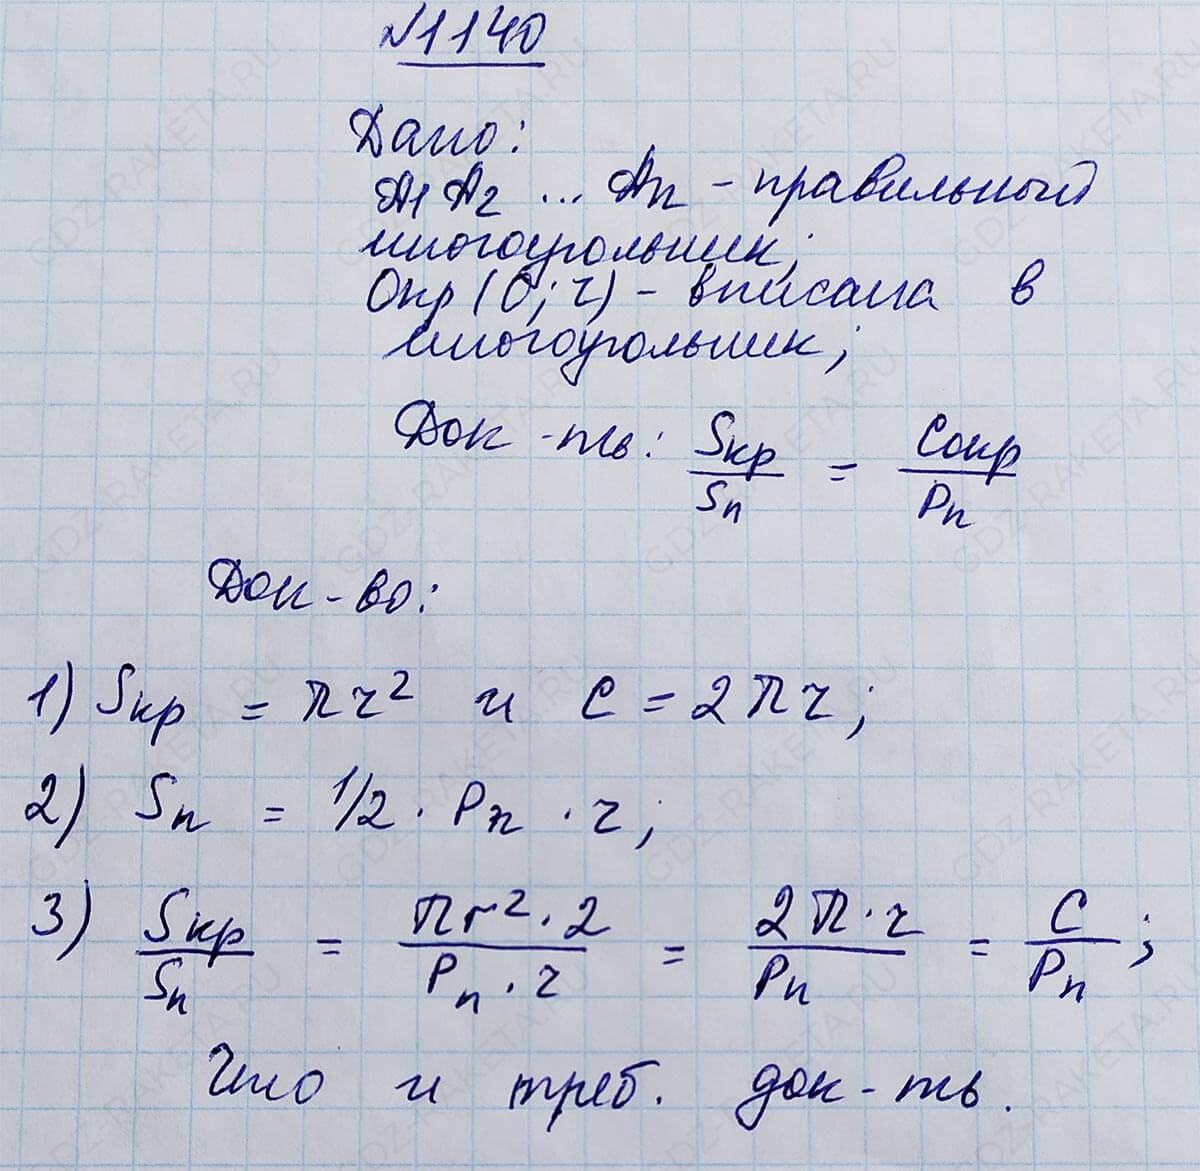 №1140
Дано:
A1 A2 ... An - правильный
многоугольник;
Окр (О; r) - вписана в
многоугольник;
Док-ть: Sкр/Sn = Cокр/Pn
Док-во:
1) Sкр = πr² и C = 2πr;
2) Sn = 1/2 · Pn · r;
3) Sкр/Sn = πr²·2/Pn·r = 2π·r/Pn = C/Pn;
Что и треб. док-ть.
GDZ-RAKETA.RU